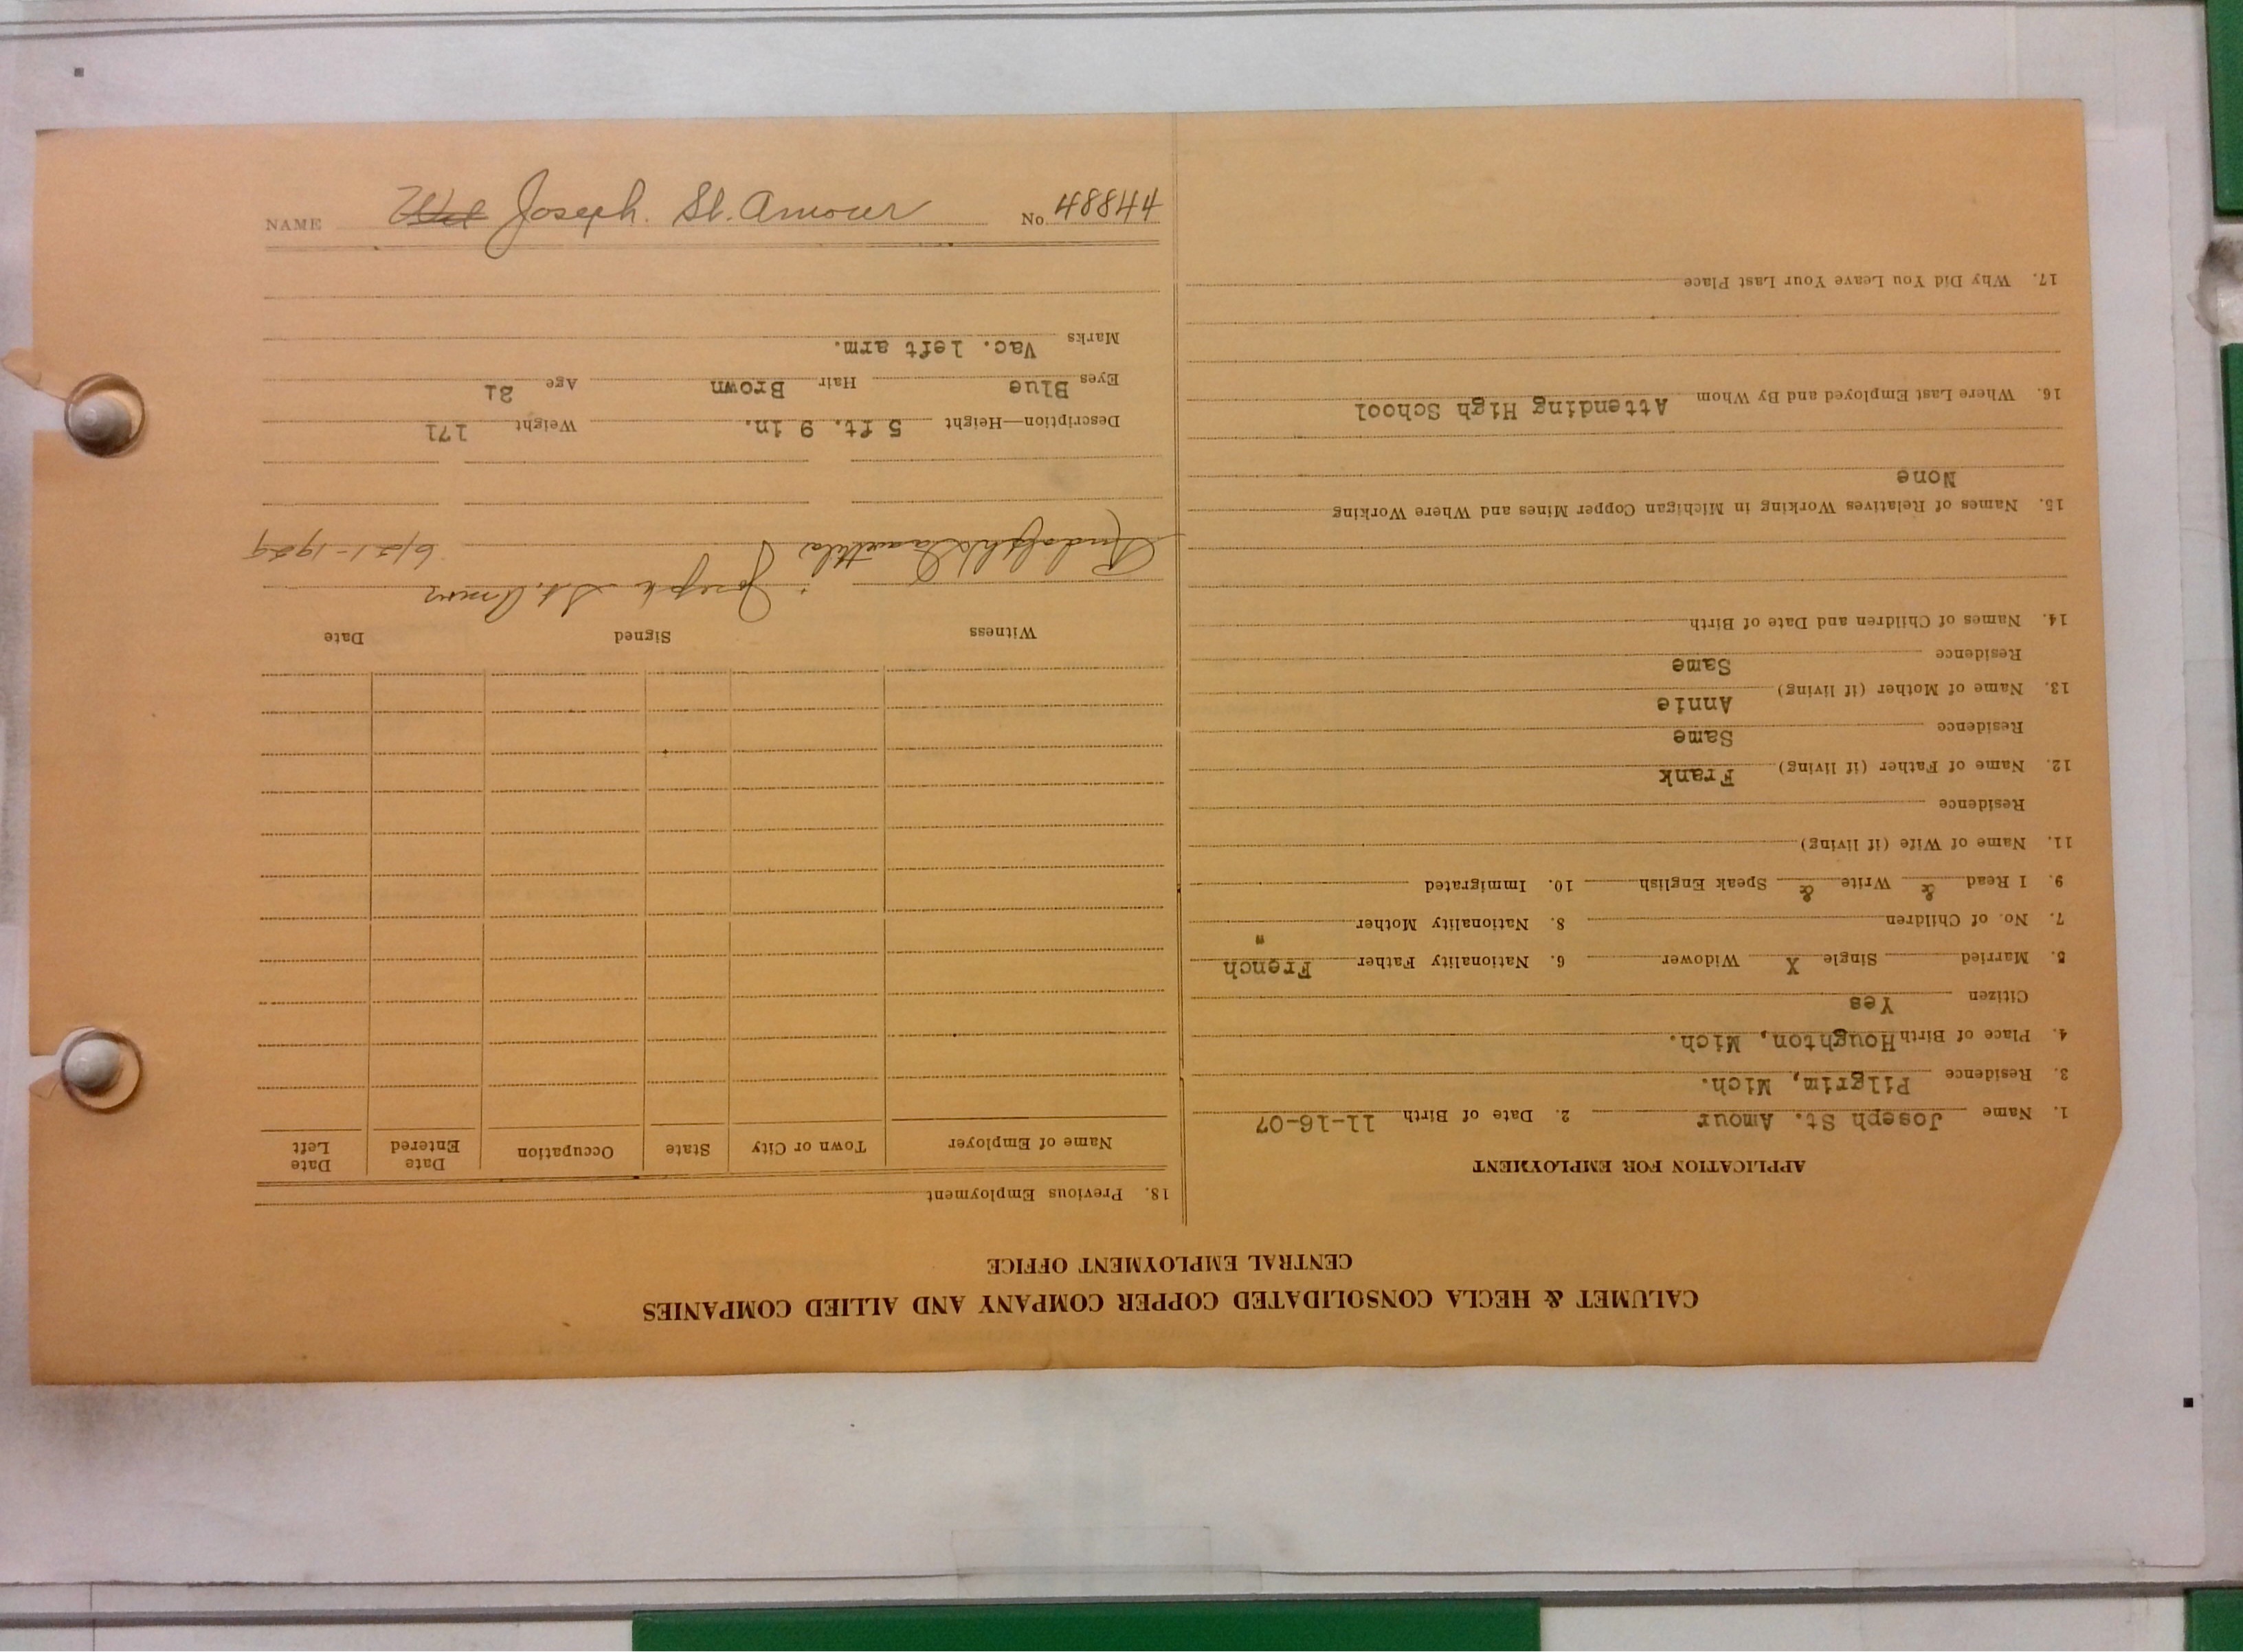 NAME Joseph. St. Amour No. 48844
CALUMET & HECLA CONSOLIDATED COPPER COMPANY AND ALLIED COMPANIES
CENTRAL EMPLOYMENT OFFICE
APPLICATION FOR EMPLOYMENT
1. Name Joseph St. Amour 2. Date of Birth 11-16-07
3. Residence Pilgrim, Mich.
4. Place of Birth Houghton, Mich.
Citizen Yes
5. Married Single X Widower 6. Nationality Father French
7. No. of Children 8. Nationality Mother "
9. I Read & Write & Speak English 10. Immigrated
11. Name of Wife (if living)
Residence
12. Name of Father (if living) Frank
Residence Same
13. Name of Mother (if living) Annie
Residence Same
14. Names of Children and Date of Birth
15. Names of Relatives Working in Michigan Copper Mines and Where Working
None
16. Where Last Employed and By Whom Attending High School
17. Why Did You Leave Your Last Place
18. Previous Employment
Name of Employer Town or City State Occupation Date Entered Date Left
Witness Signed Date
Rudolph Joseph St. Amour 6/21-1929
Description—Height 5 ft. 9 in. Weight 171
Eyes Blue Hair Brown Age 21
Marks Vac. left arm.